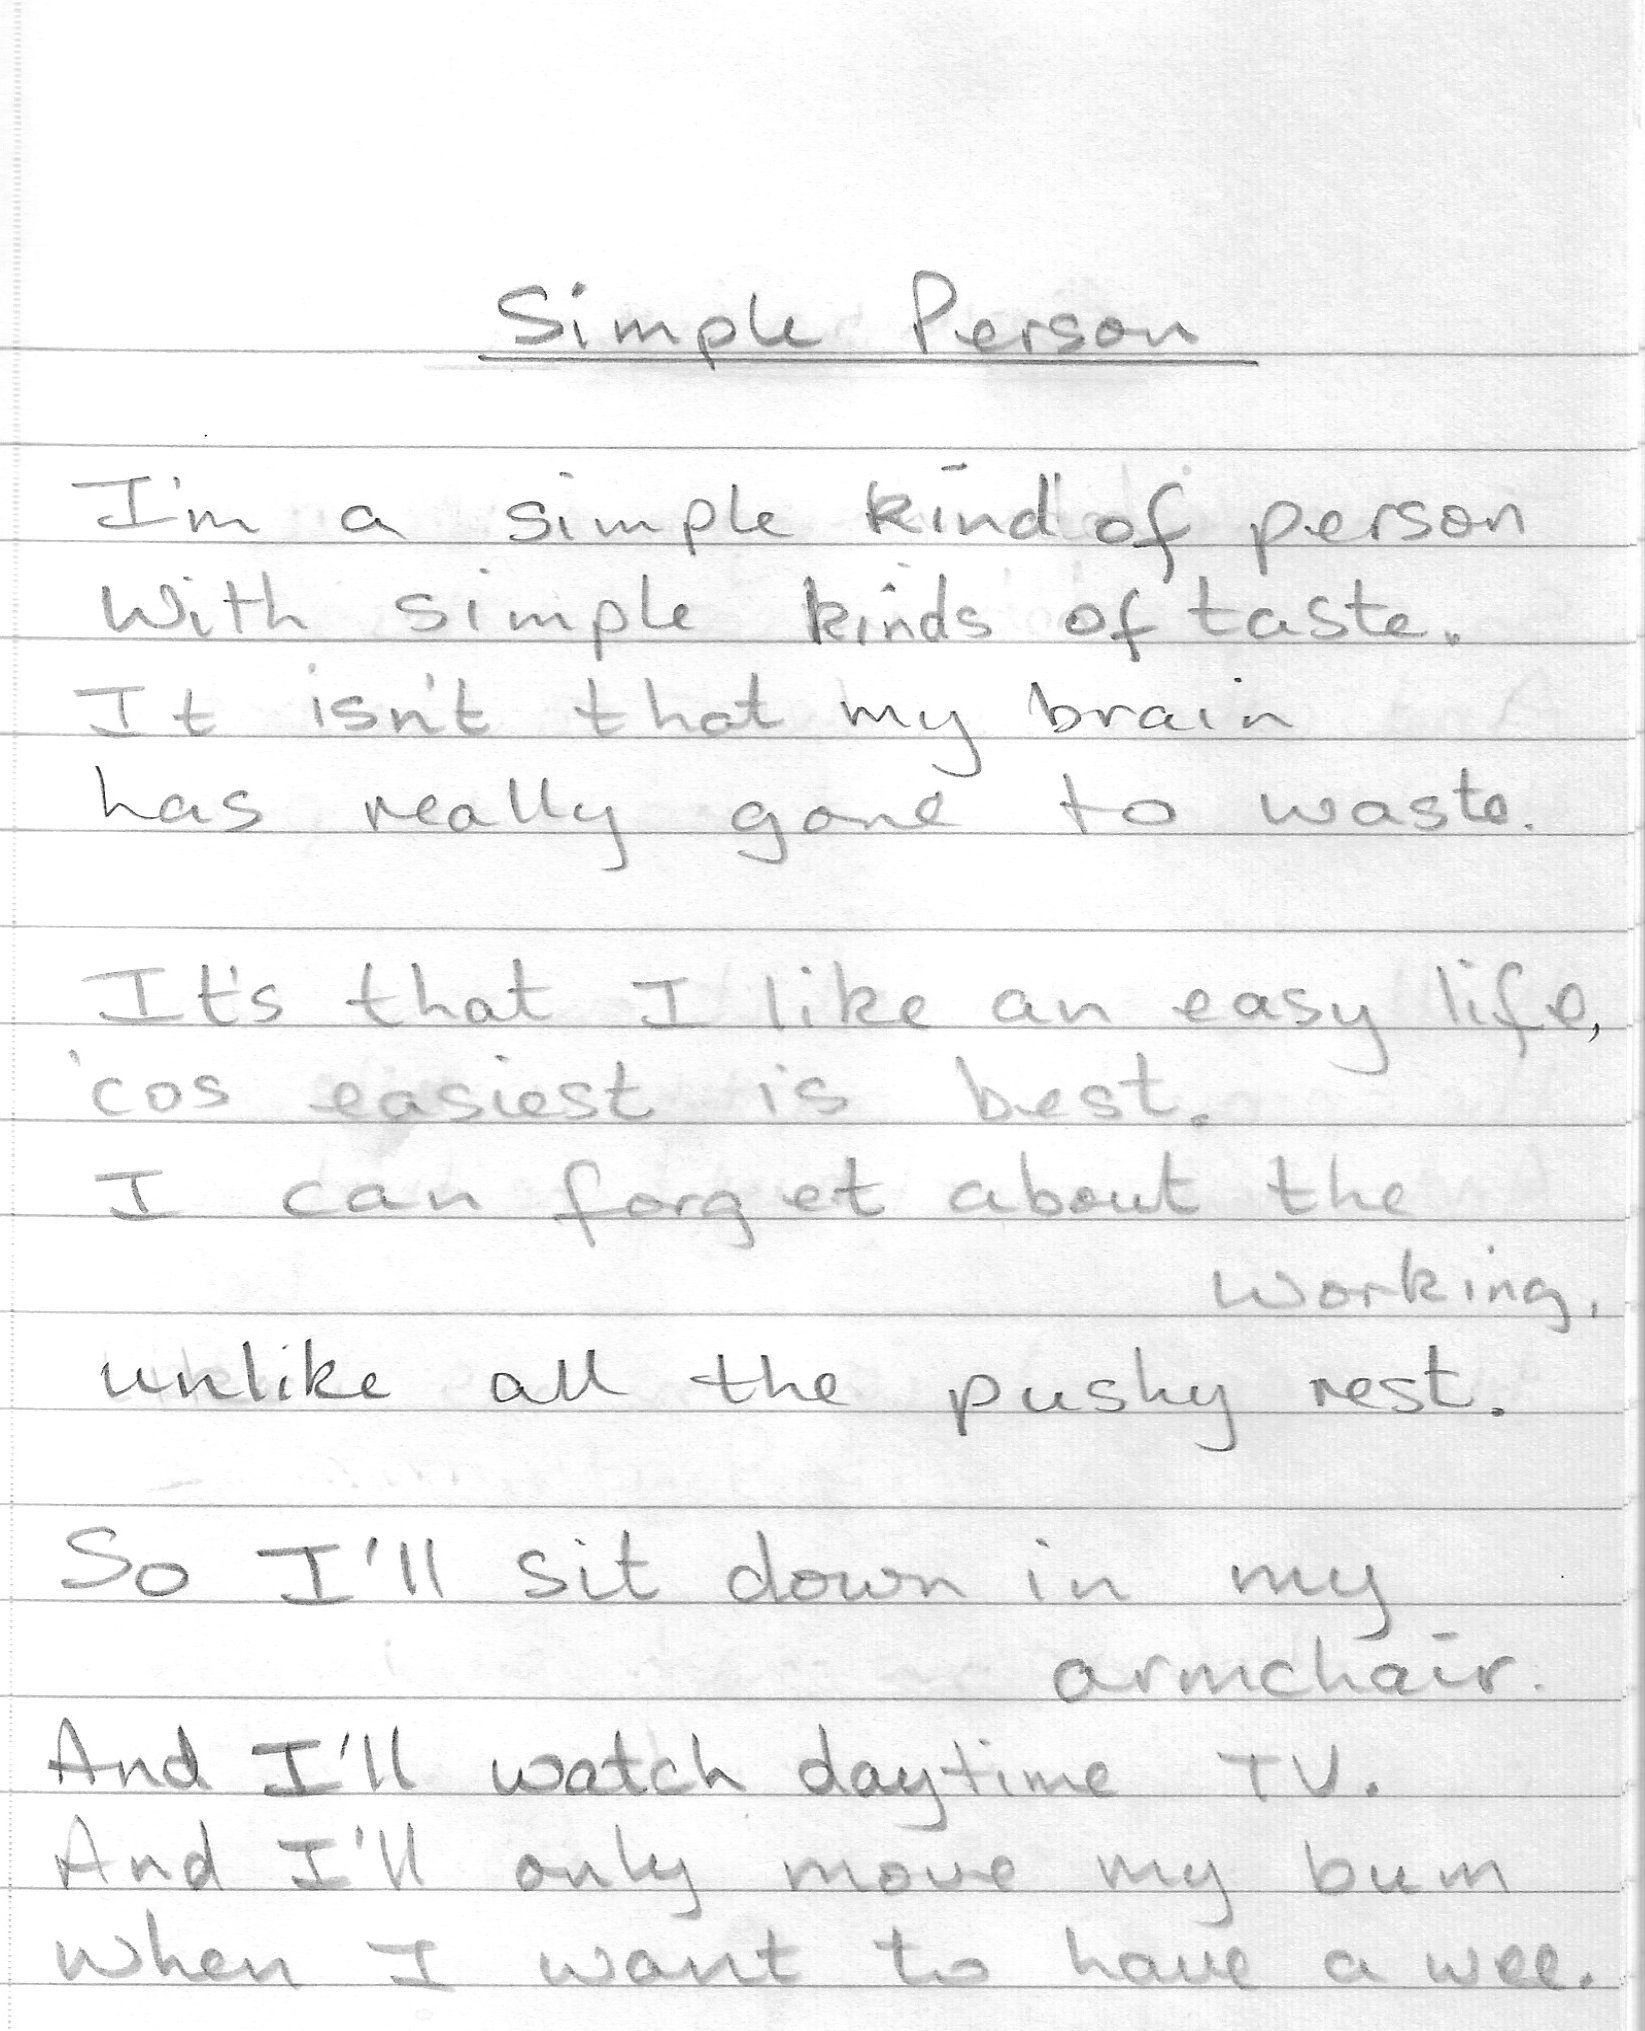 Simple Person
I'm a simple kind of person
With simple kinds of taste.
It isn't that my brain
has really gone to waste.
It's that I like an easy life,
'cos easiest is best.
I can forget about the
working,
unlike all the pushy rest.
So I'll sit down in my
armchair.
And I'll watch daytime TV.
And I'll only move my bum
when I want to have a wee.